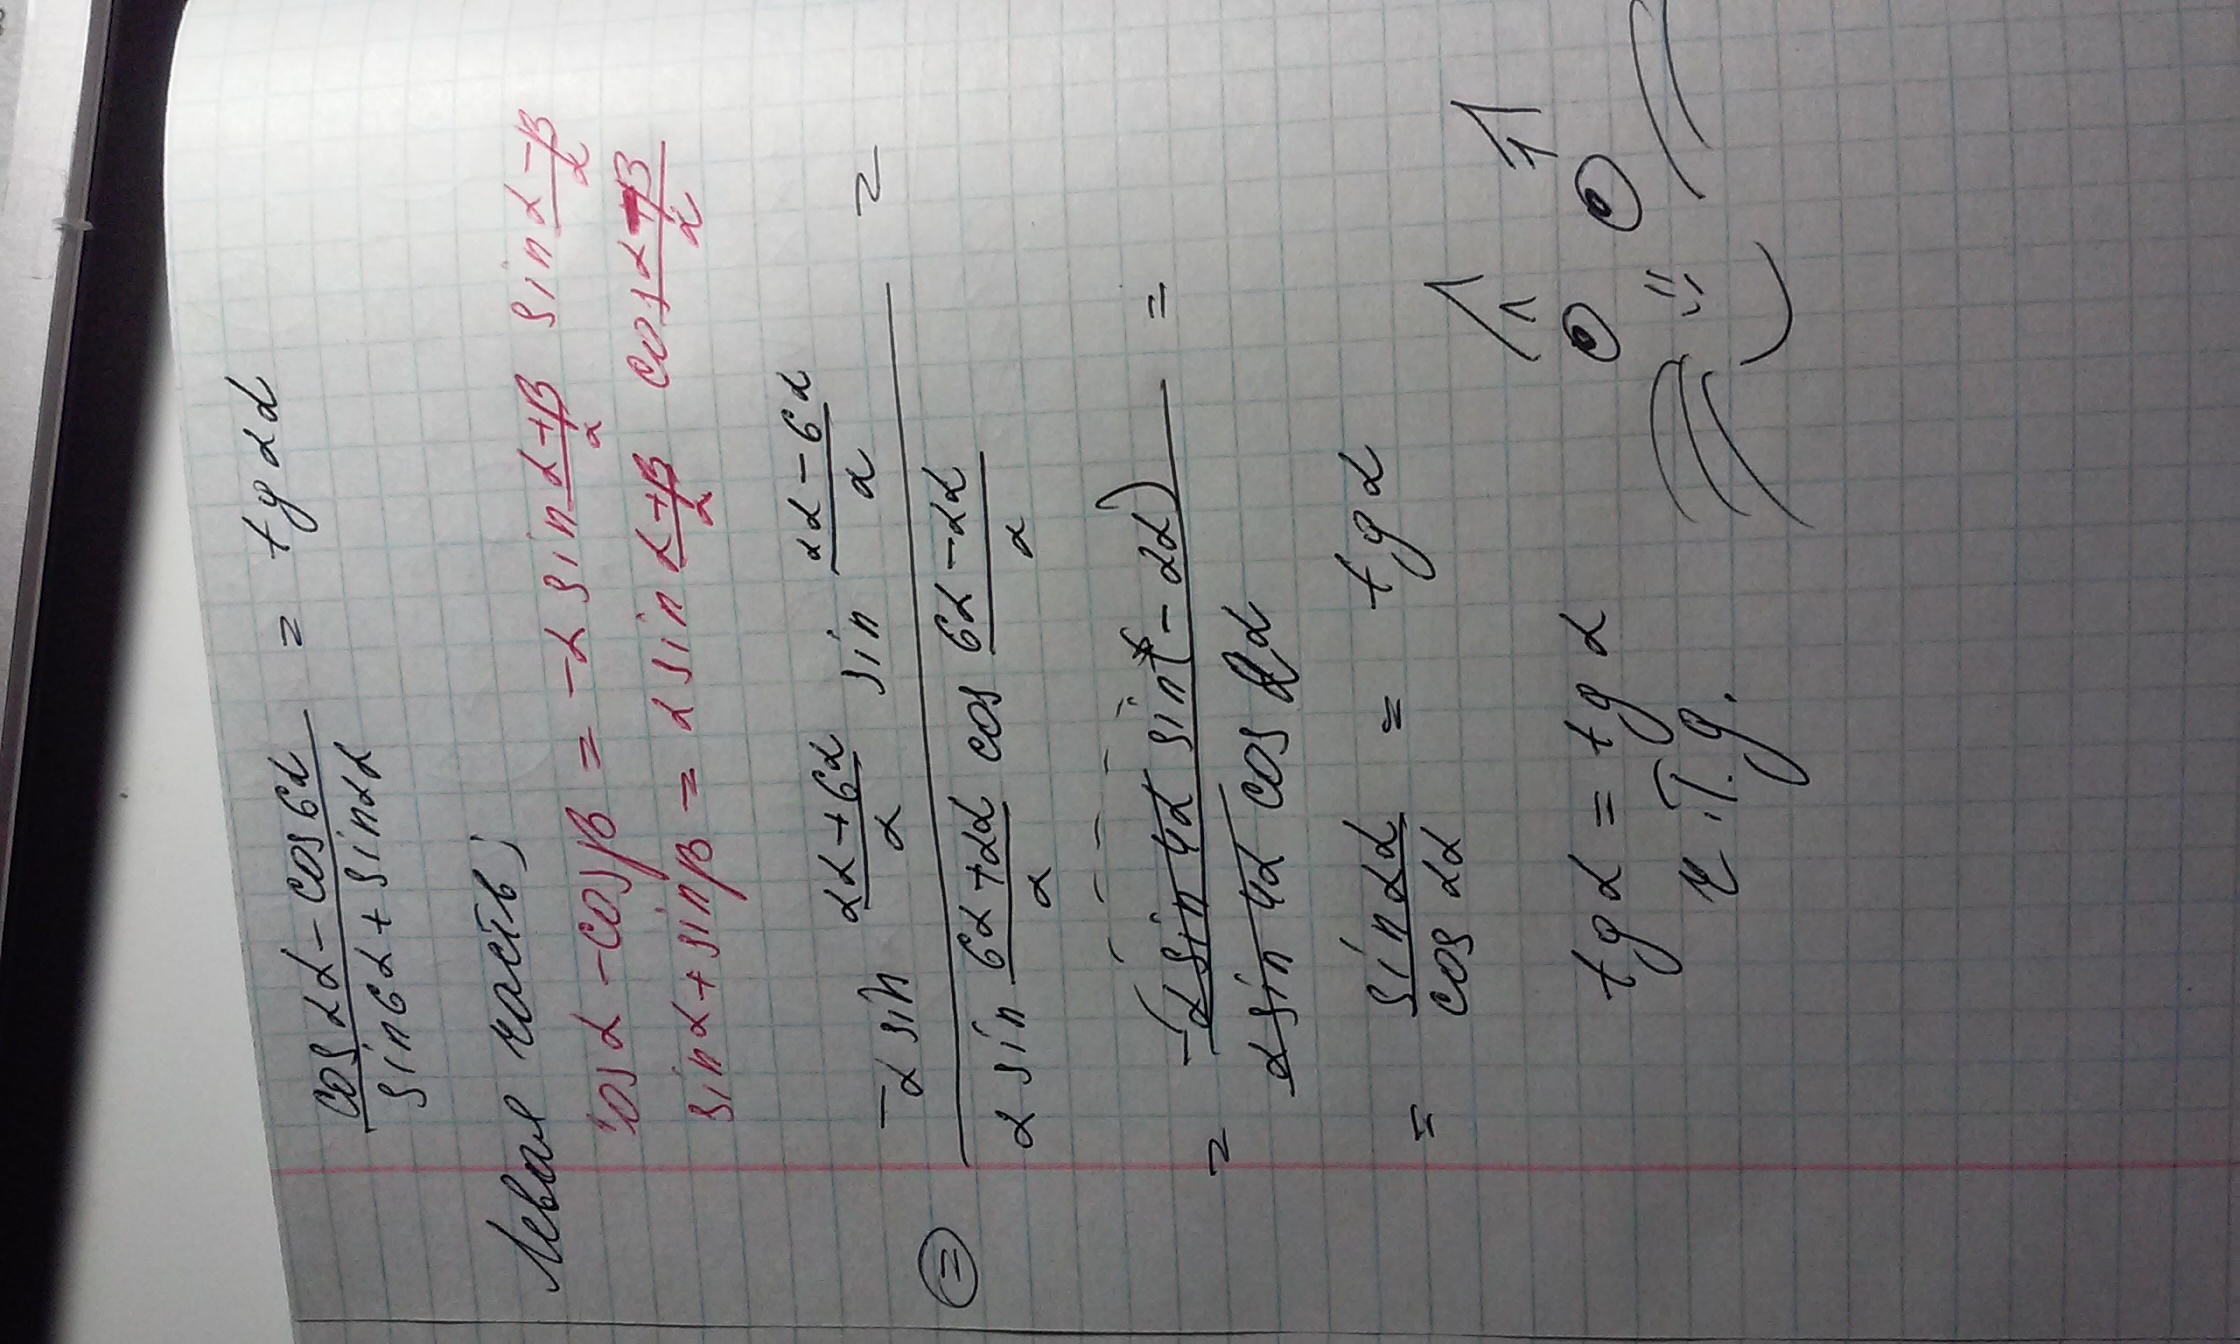 cos 2α - cos 6α / sin 6α + sin 2α = tg 2α
Левая часть:
cos α - cos β = -2 sin α+β/2 sin α-β/2
sin α + sin β = 2 sin α+β/2 cos α-β/2
⊜ -2 sin 2α+6α/2 sin 2α-6α/2 / 2 sin 6α+2α/2 cos 6α-2α/2 =
= -2 sin 4α sin(-2α) / 2 sin 4α cos 2α =
= sin 2α / cos 2α = tg α
tg α = tg α
ч.т.д.